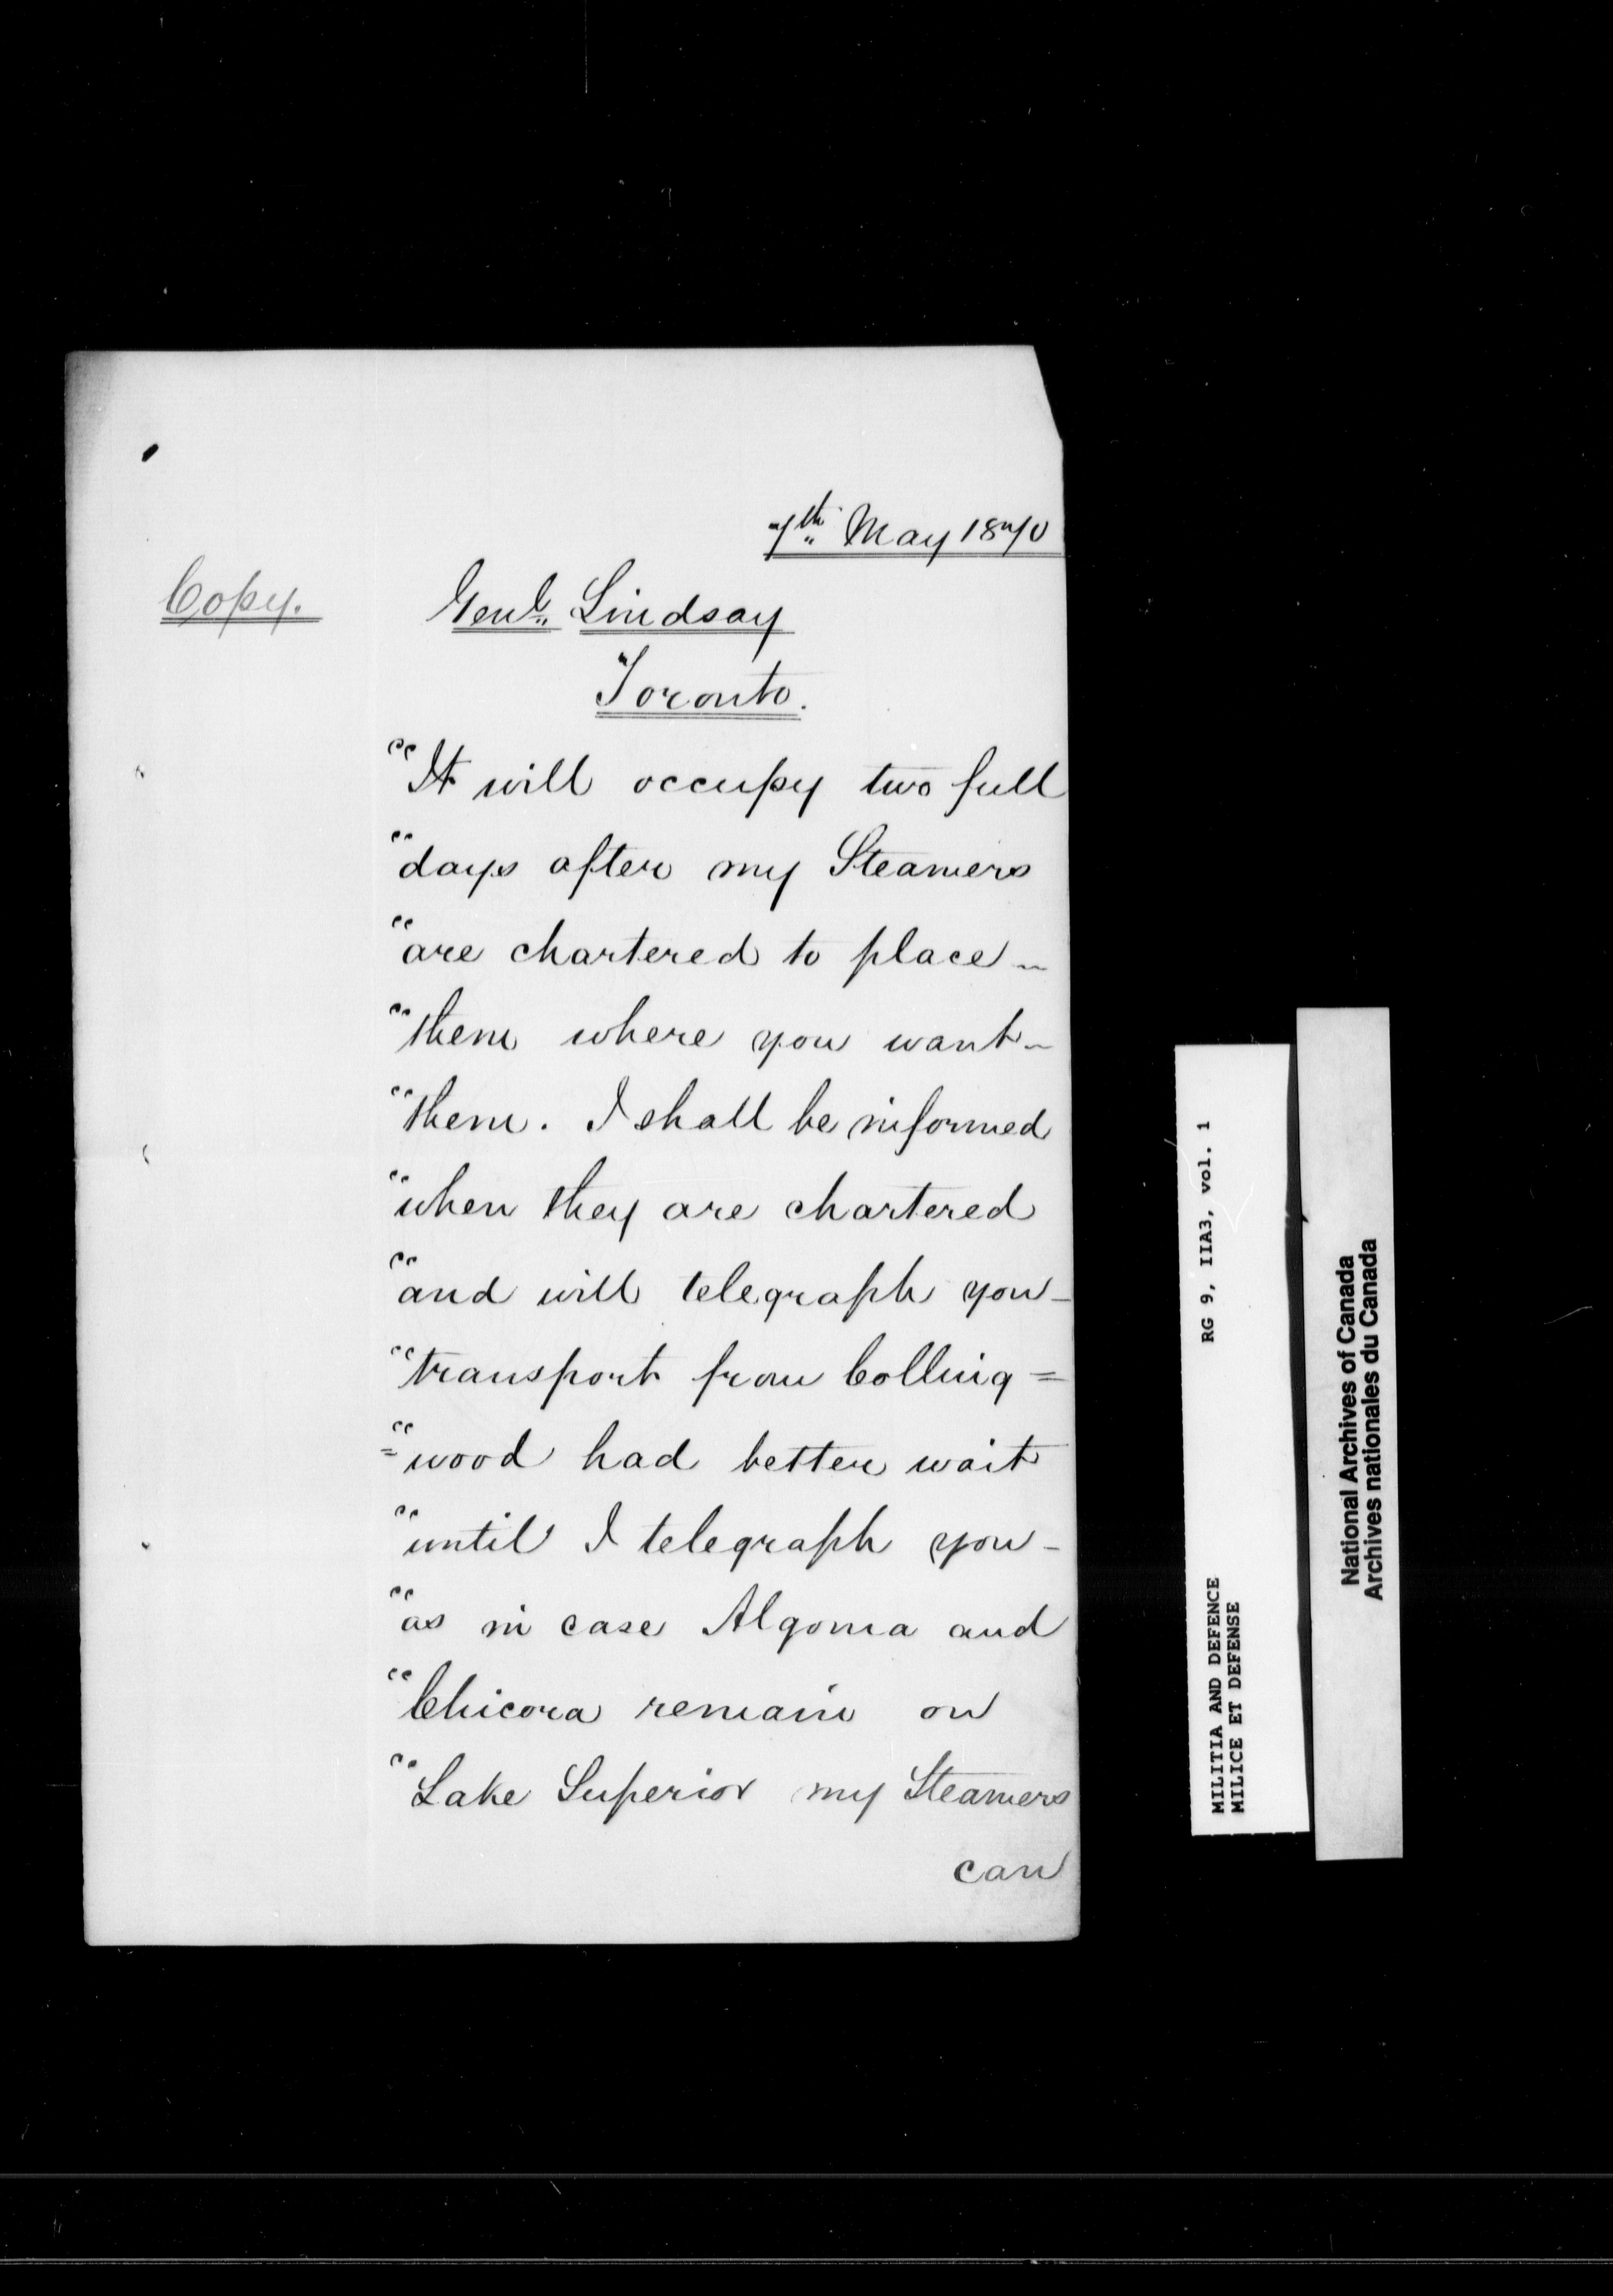 7th May 1870
Copy.
Genl. Lindsay
Toronto.
"It will occupy two full
"days after my Steamers
"are chartered to place
"them where you want
"them. I shall be informed
"when they are chartered
"and will telegraph you -
"transport from Colling=
="wood had better wait
"until I telegraph you -
"as in case Algoma and
"Chicora remain on
"Lake Superior my Steamers
can
RG 9, IIA3, vol. 1
MILITIA AND DEFENCE
MILICE ET DEFENSE
National Archives of Canada
Archives nationales du Canada